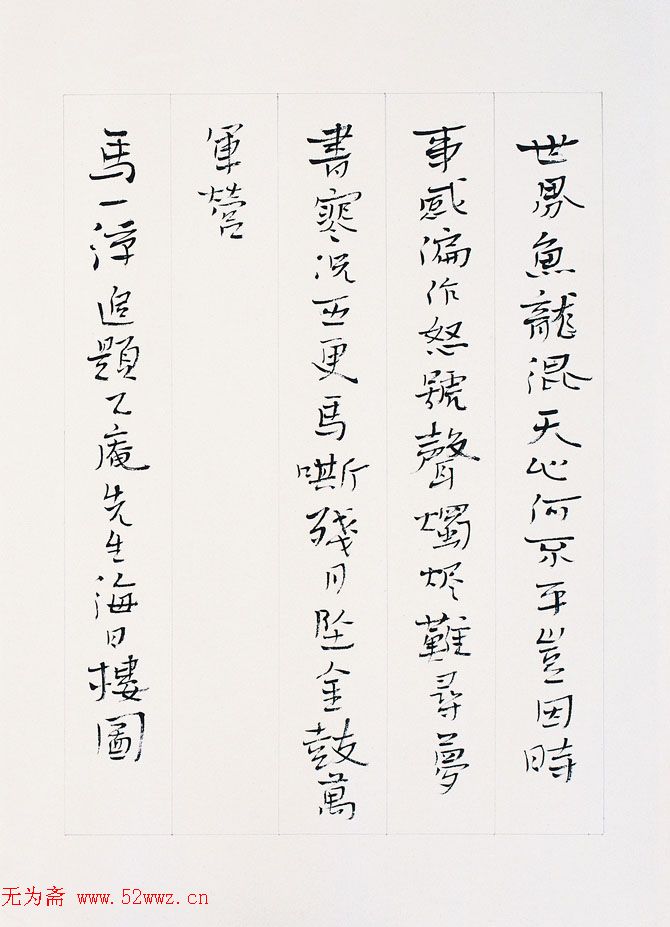 世界魚龍混天心何不平豈因時
事感偏作怒號聲燭烬難尋夢
書寒況五更馬嘶殘月坠金鼓萬
軍營
馬一浮追題乙庵先生海日樓圖
无为斋 www.52wwz.cn